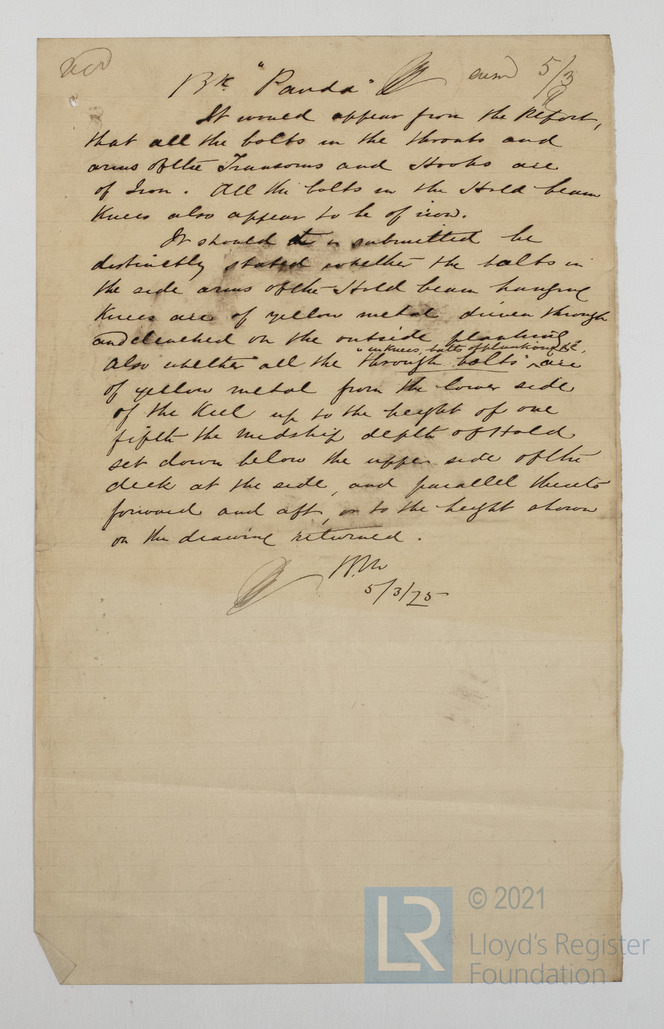 Bk "Panda" 5/3
It would appear from the Report,
that all the bolts in the throats and
arms of the Transoms and Hooks are
of Iron. All the bolts in the Hold beam
Knees also appear to be of iron.
It should it is submitted be
distinctly stated whether the bolts in
the side arms of the Hold beam hanging
Knees are of yellow metal driven through
and clenched on the outside planking
"in Knees, bolts of planking &c,
also whether all the through bolts" are
of yellow metal from the lower side
of the Keel up to the height of one
fifth the midship depth of Hold
set down below the upper side of the
deck at the side, and parallel thereto
forward and aft, or to the height shown
on the drawing returned.
5/3/75
LR
© 2021
Lloyd's Register
Foundation